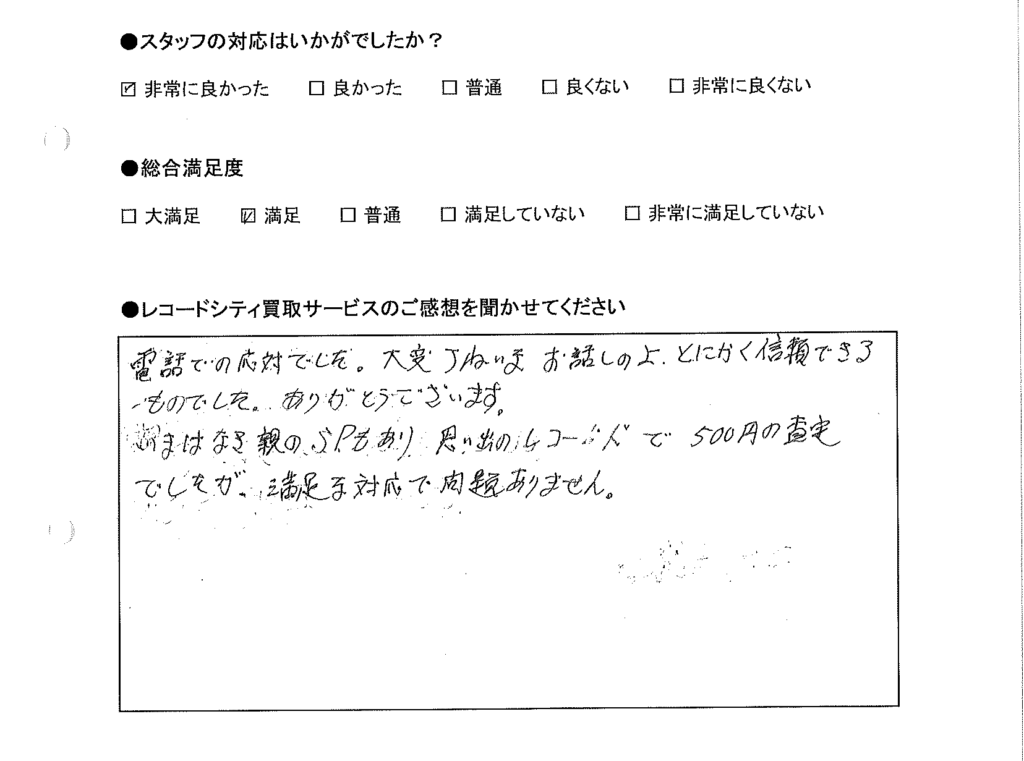 ●スタッフの対応はいかがでしたか？
☑ 非常に良かった ☐ 良かった ☐ 普通 ☐ 良くない ☐ 非常に良くない
●総合満足度
☐ 大満足 ☑ 満足 ☐ 普通 ☐ 満足していない ☐ 非常に満足していない
●レコードシティ買取サービスのご感想を聞かせてください
電話での応対でした。大変ていねいな お話しのよ、とにかく信頼できる
ものでした。ありがとうございます。
はなき親のSPもあり 思い出のレコードで 500円の査定
でしたが、満足な対応で問題ありません。